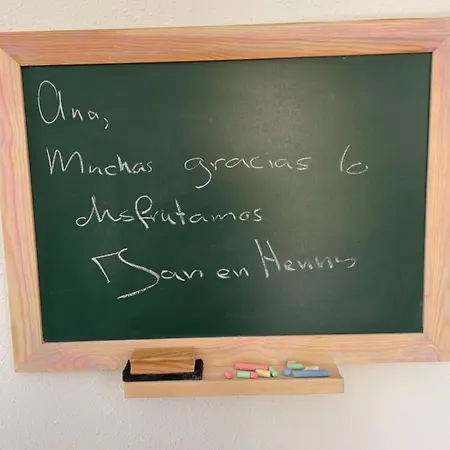 Ana,
Muchas gracias lo
disfrutamos
Jan en Henny